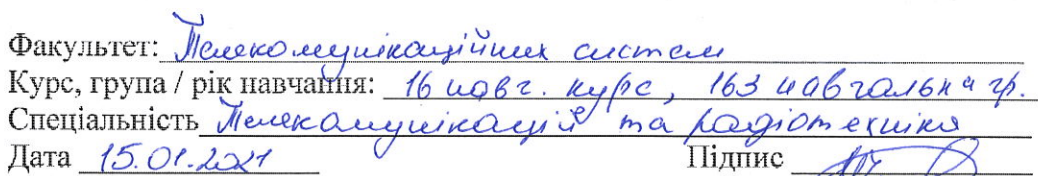 Факультет: Телекомунікаційних систем
Курс, група / рік навчання: 16 навч. курс, 163 навчальна гр.
Спеціальність Телекомунікації та радіотехніка
Дата 15.01.2021 Підпис